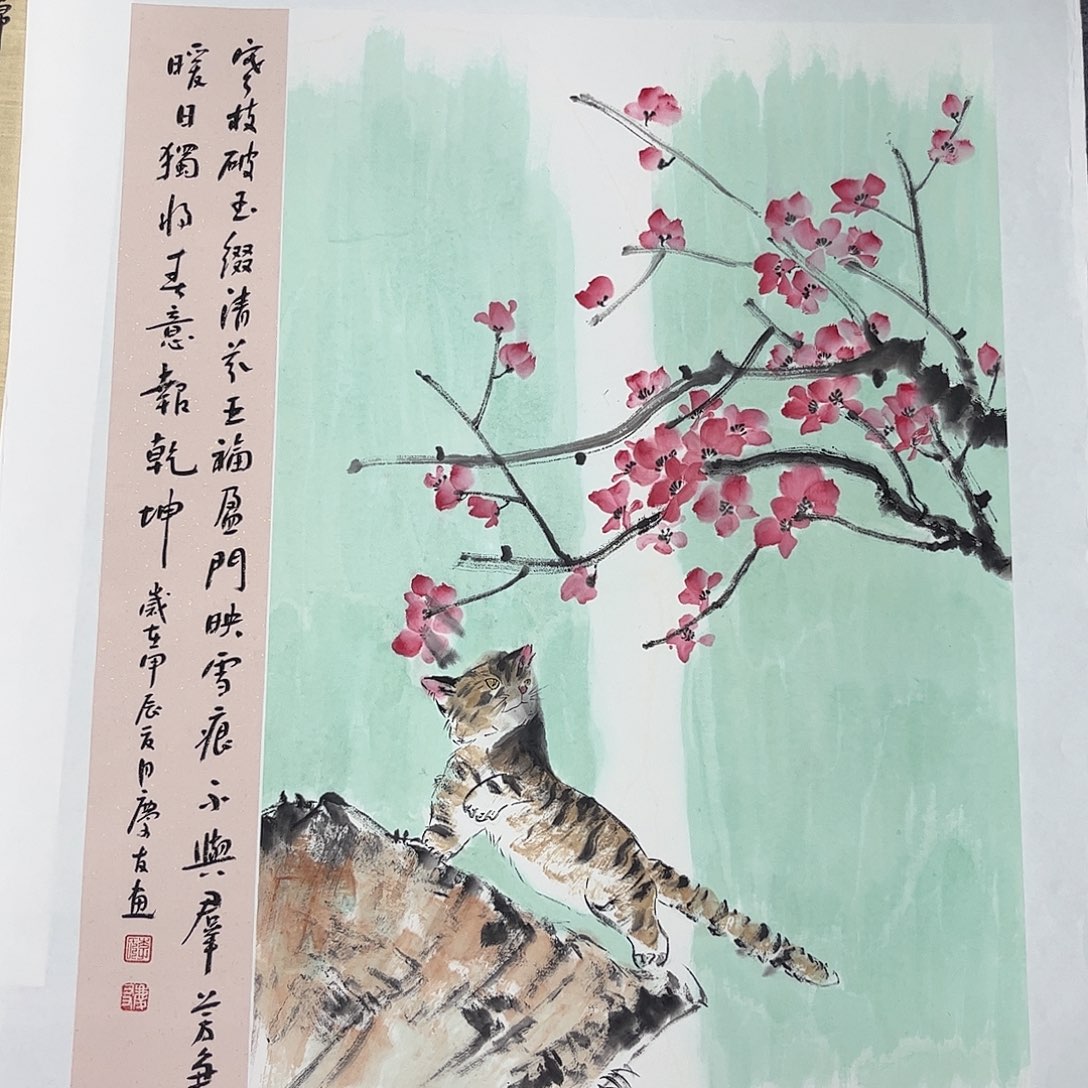 寒枝破玉綴清芬五福盈門映雪痕不與羣芳争
暖日獨將春意報乾坤 歲在甲辰夏月慶友画